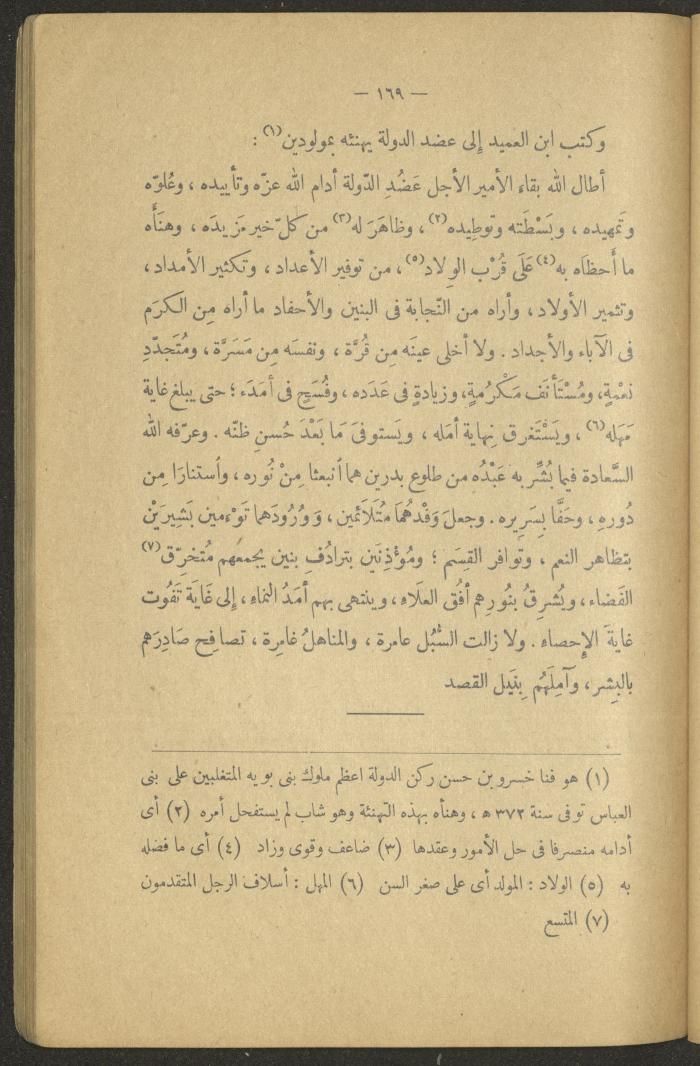 — ١٦٩ —
وكتب ابن العميد إلى عضد الدولة يهنئه بمولودين(١) :
أطال الله بقاء الأمير الأجل عَضُدِ الدّولة أدام الله عزّه وتأييده ، وعُلوّه
وتَمهيده ، وبَسْطَته وتوطِيده(٢) ، وظاهَرَ له(٣) من كلّ خير مَزيدَه ، وهنَأَه
ما أَحظاَه به(٤) عَلَى قُرْب الولاد(٥) ، من توفير الأعداد ، وتكثير الأمداد ،
وتثمير الأولاد ، وأراه من النّجابة فى البنين والأحفاد ما أراه مِن الكرَم
فى الآباء والأجداد . ولا أخلى عينَه مِن قُرَّة ، ونفسَه مِن مَسَرَّة ، ومُتَجدّدِ
نعْمةٍ، ومُسْتَأنَف مَكْرُمةٍ، وزيادةٍ فى عَدَده ، وفُسَحٍ فى أمَدَه ؛ حتى يبلغ غاية
مَهَله(٦) ، ويَسْتَغرق نِهاية أمَله ، ويَستوفىَ مَا بَعْدَ حُسنِ ظنّه . وعرّفه الله
السَّعادة فيما بُشِّر به عَبْدُه من طلوع بدرين هما أنبعثا مِنْ نُوره ، وأستنارَا مِن
دُورهِ ، وحَفَّا بِسَرِيره . وجعلَ وَفْدهُمَا مُتَلَائمين ، وَوُرُودَهما تَوْءمين بَشِيرَيْن
بتظاهر النعم ، وتَوافر القِسَم ؛ ومُؤْذِنَين بترادُفِ بنين يجمعهم مُتخرّق(٧)
الفَضاء ، ويُشرقُ بنُورهم أفُق العلَاءِ ، وينتهى بهم أمَدُ النماءِ ، إلى غَاية تَفُوت
غايةَ الإحصاءِ . ولا زالت السُّبُل عامرة ، والمناهلُ غامِرة ، تصافِح صَادِرَهم
بالبِشر ، وآمِلَهُم بِنَيل القصد
(١) هو فنا خسرو بن حسن ركن الدولة اعظم ملوك بنى بويه المتغلبين على بنى
العباس توفى سنة ٣٧٢ ھ ، وهنأه بهذه التهنئة وهو شاب لم يستفحل أمره (٢) أى
أدامه منصرفا فى حل الأمور وعقدها (٣) ضاعف وقوى وزاد (٤) أى ما فضله
به (٥) الولاد : المولد أى على صغر السن (٦) المهل : أسلاف الرجل المتقدمون
(٧) المتسع